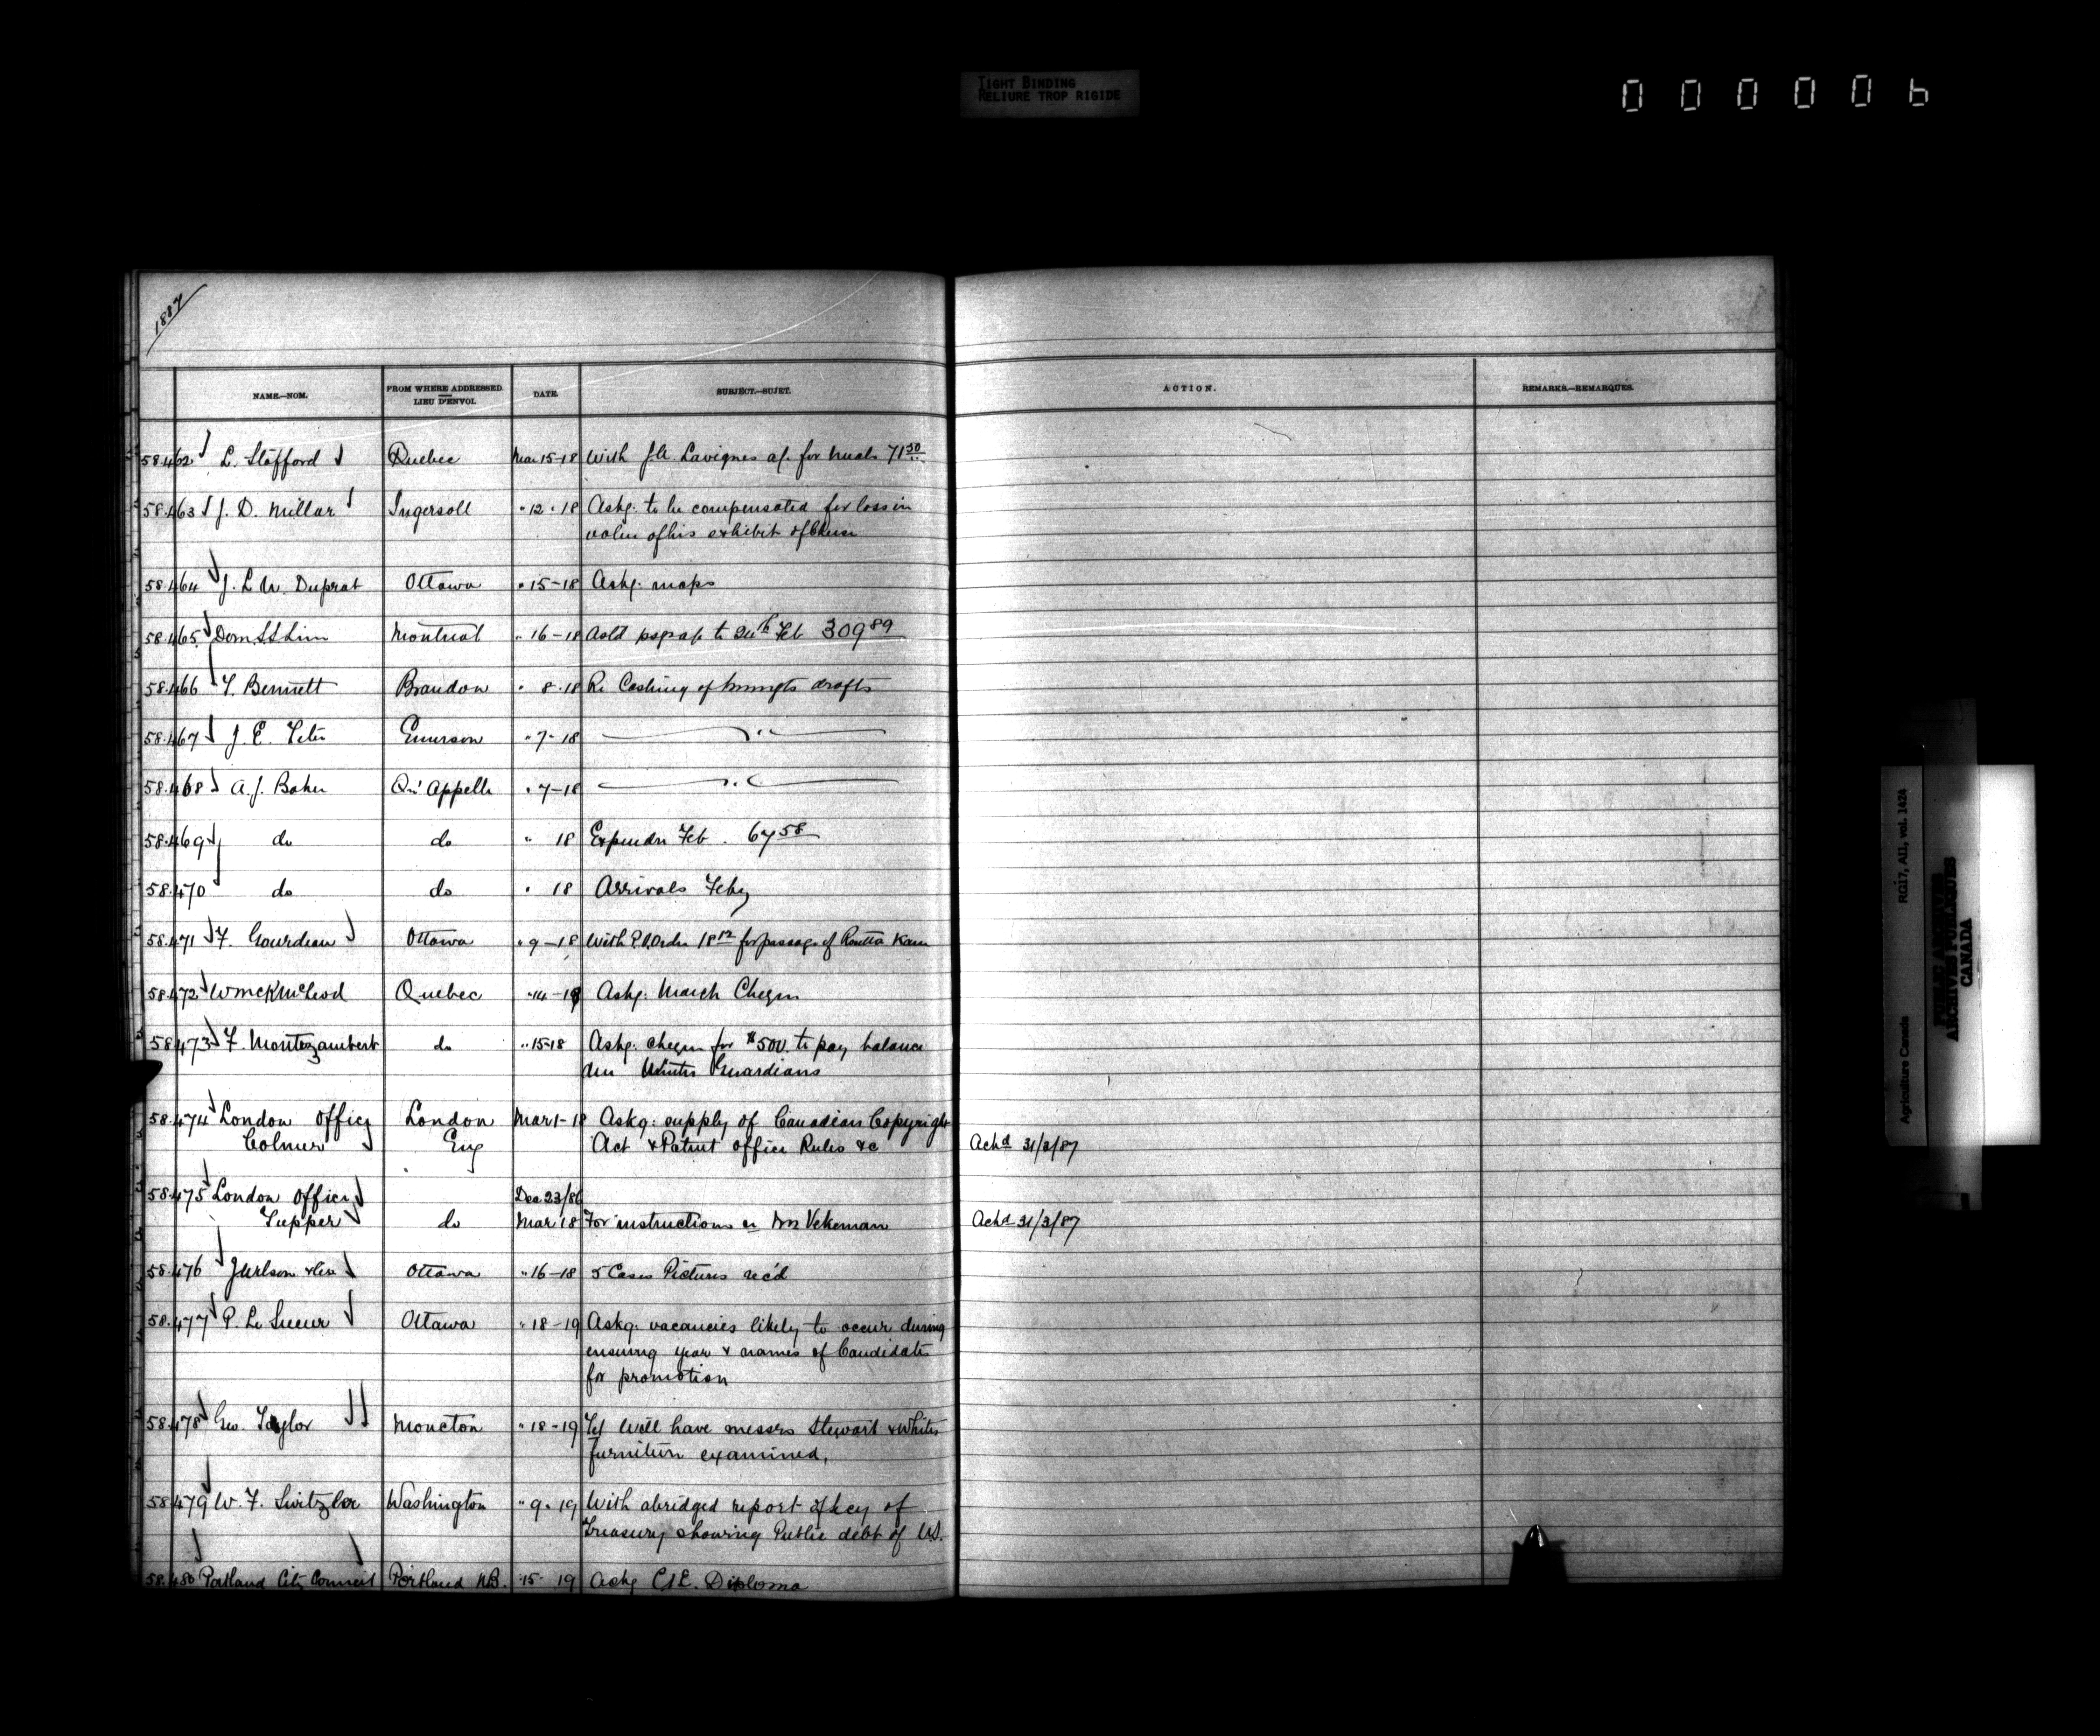 TIGHT BINDING
RELIURE TROP RIGIDE
000006
1887
NAME.—NOM. FROM WHERE ADDRESSED. LIEU D'ENVOI. DATE. SUBJECT.—SUJET. ACTION. REMARKS.—REMARQUES.
58.462 L. Stafford Quebec Mar 15-18 With J.A. Lavignes a/c. for meals 71 50
58.463 J. D. Millar Ingersoll " 12 " 18 Askg. to be compensated for loss in
value of his exhibit of Cheese
58.464 J. L. N. Duprat Ottawa " 15-18 Askg. maps
58.465 Dom. S S Line Montreal " 16-18 to 24th Feb 309 89
58.466 T. Bennett Brandon " 8-18 Re Cashing of Immgts drafts
58.467 J. E. Tetu Emerson " 7-18 "
58.468 A. J. Baker Qu' Appelle " 7-18 "
58.469 do do " 18 Expendre Feb. 67 58
58.470 do do " 18 Arrivals Feby
58.471 F. Gourdeau Ottawa " 9-18 With P.O. Order 18 12 for passage of
58.472 W McK McLeod Quebec " 14-18 Askg. March Cheque
58.473 F. Montizambert do " 15-18 Askg. cheque for $500. to pay balance
due Winter Guardians
58.474 London Office London Mar 1-18 Askg: supply of Canadian Copyright
Colmer Eng Act & Patent office Rules &c Ackd 31/3/87
58.475 London Office Dec 23/86
Tupper do Mar 18 For instructions re Mrs Vekeman Ackd 31/3/87
58.476 & Co Ottawa " 16-18 5 Cases Pictures rec'd
58.477 P. Le Sueur Ottawa " 18-19 Askg. vacancies likely to occur during
ensuing year & names of Candidates
for promotion
58.478 Geo. Taylor Moncton " 18-19 Tel Will have messrs Stewart & Whites
furniture examined.
58.479 W. F. Switzler Washington " 9-19 With abridged report of Secy of
Treasury showing Public debt of U.S.
58.480 Portland City Council Portland N.B. " 15- 19 Askg C&IE. Diploma
RG17, AII, vol. 1424
Agriculture Canada
PUBLIC ARCHIVES
ARCHIVES PUBLIQUES
CANADA